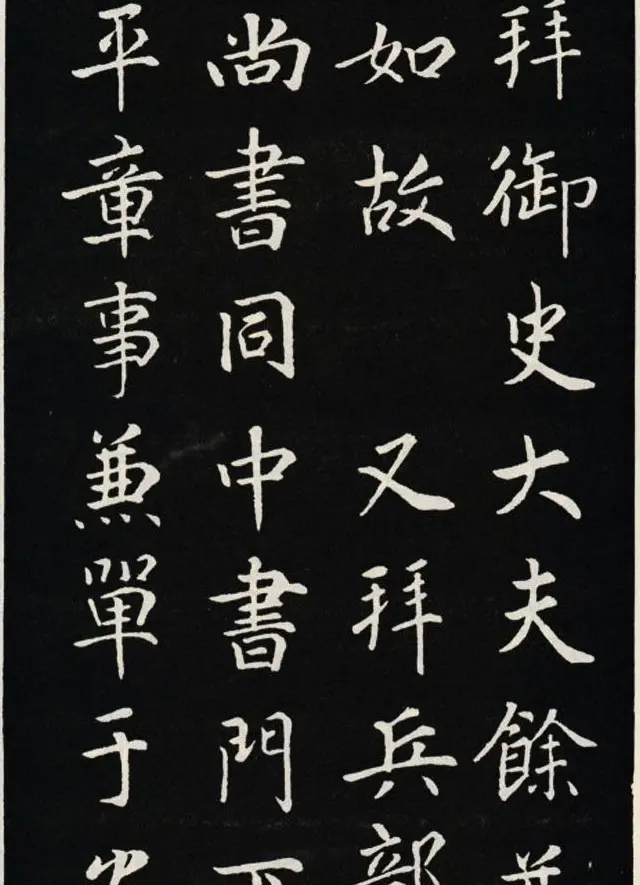 拜御史大夫餘並
如故 又拜兵部
尚書同中書門下
平章事兼單于